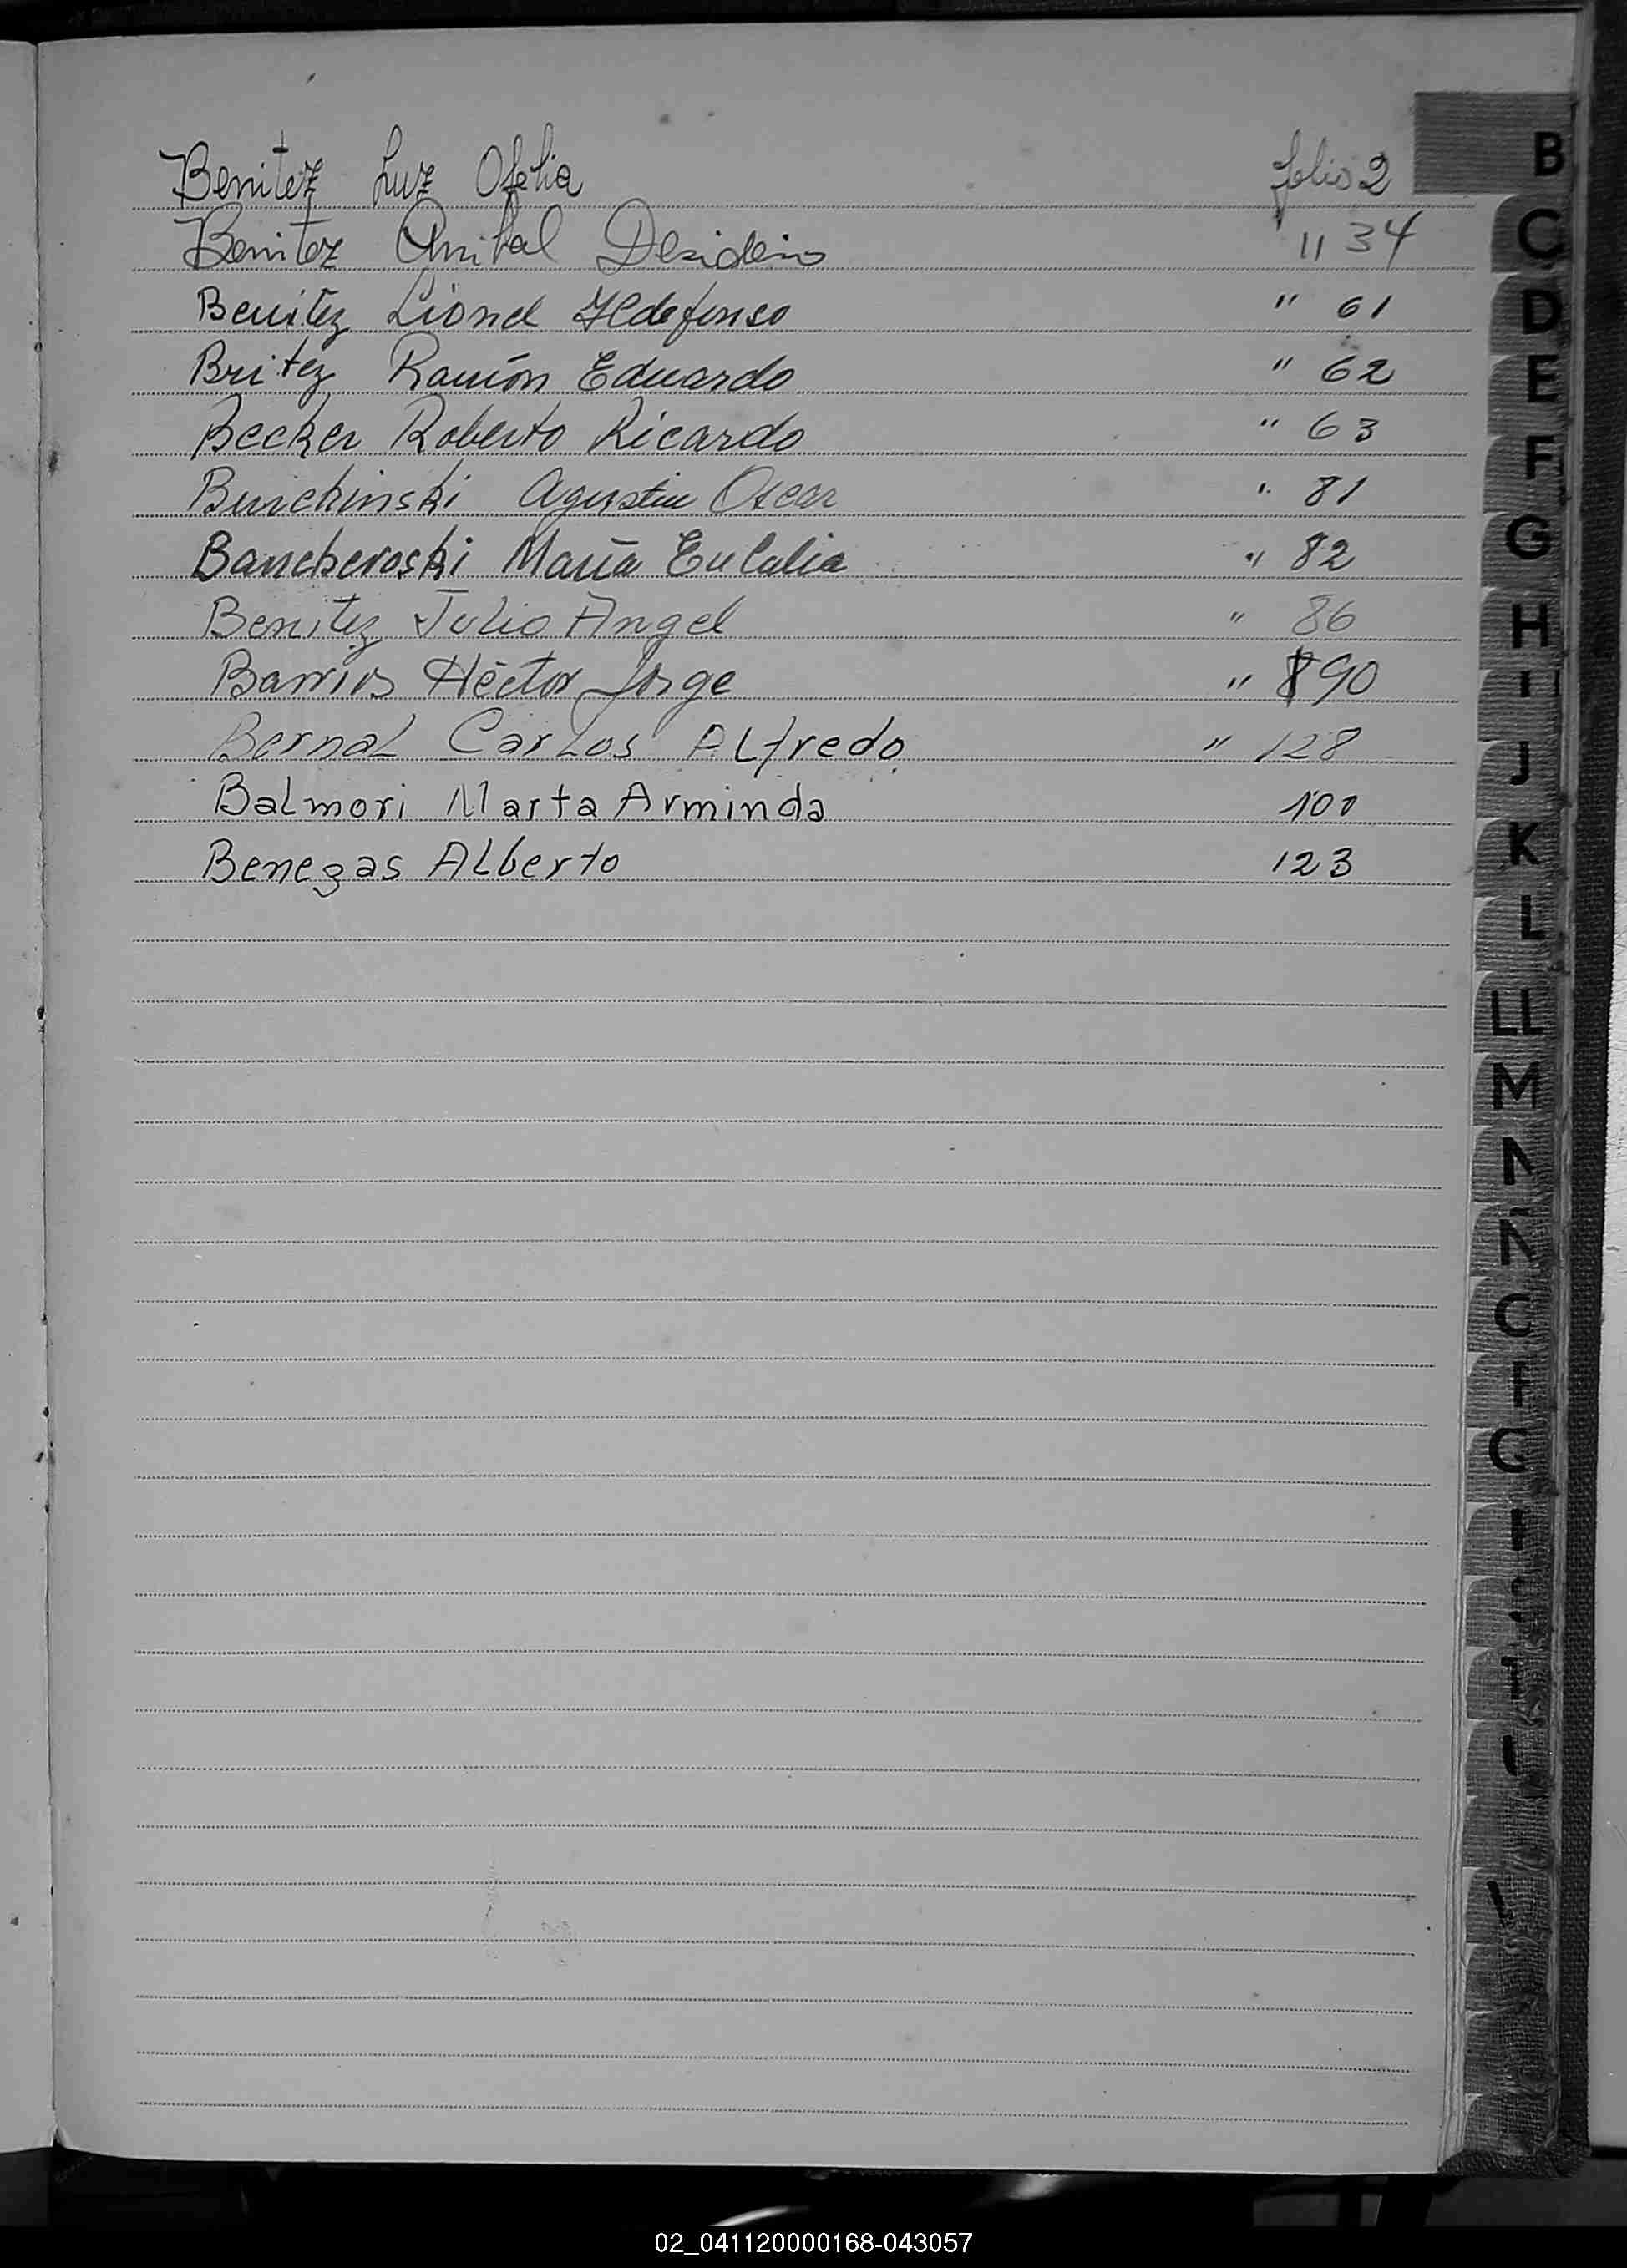 Benitez Luz Ofelia folio 2
Benitez Anibal Desiderio " 34
Benitez Lionel Ildefonso " 61
Britez Ramón Eduardo " 62
Becker Roberto Ricardo " 63
Agustin Oscar " 81
María Eulalia " 82
Benitez Julio Angel " 86
Barrios Héctor Jorge " 90
Bernal Carlos Alfredo " 128
Balmori Marta Arminda
Benegas Alberto 123
B
C
D
E
F
G
H
I
J
K
L
LL
M
N
Ñ
02_041120000168-043057